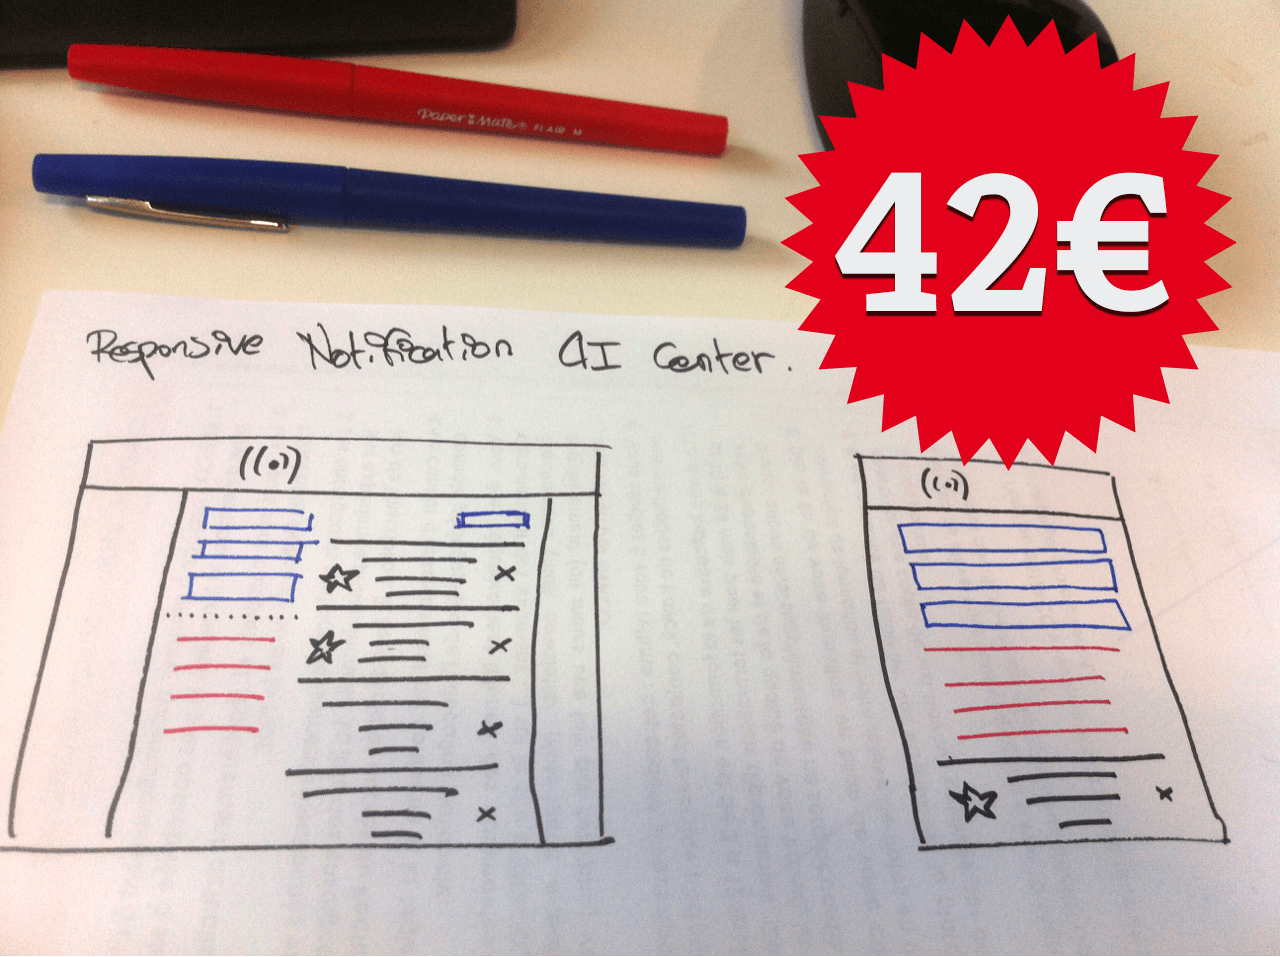 Paper:Mate® FLAIR M
42€
Responsive Notification AI Center.